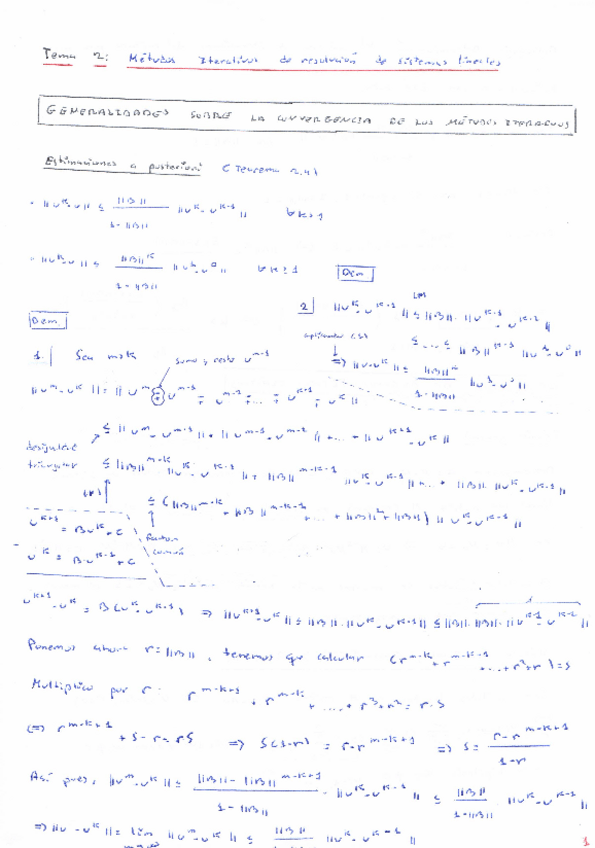 Tema 2: Métodos Iterativos de resolución de sistemas lineales
GENERALIDADES SOBRE LA CONVERGENCIA DE LOS MÉTODOS ITERATIVOS
Estimaciones a posteriori (Teorema 2.4)
· ||u^k - u|| ≤ ||B|| / (1 - ||B||) ||u^k - u^{k-1}|| ∀k ≥ 1
· ||u^k - u|| ≤ ||B||^k / (1 - ||B||) ||u^1 - u^0|| ∀k ≥ 1
Dem
2) ||u^k - u^{k-1}|| ≤ ||B|| · ||u^{k-1} - u^{k-2}||
≤ ... ≤ ||B||^{k-1} ||u^1 - u^0||
⇒ ||u^k - u|| ≤ ||B||^k / (1 - ||B||) ||u^1 - u^0||
Dem
1) Sea m > k
sumo y resto u^{m-1}
||u^m - u^k|| = ||u^m ∓ u^{m-1} ∓ u^{m-2} ∓ ... ∓ u^{k+1} - u^k||
desigualdad triangular
≤ ||u^m - u^{m-1}|| + ||u^{m-1} - u^{m-2}|| + ... + ||u^{k+1} - u^k||
≤ ||B||^{m-k} ||u^k - u^{k-1}|| + ||B||^{m-k-1} ||u^k - u^{k-1}|| + ... + ||B|| ||u^k - u^{k-1}||
≤ (||B||^{m-k} + ||B||^{m-k-1} + ... + ||B||^2 + ||B||) ||u^k - u^{k-1}||
factor común
u^{k+1} = Bu^k + c
u^k = Bu^{k-1} + c
u^{k+1} - u^k = B(u^k - u^{k-1}) ⇒ ||u^{k+1} - u^k|| ≤ ||B|| · ||u^k - u^{k-1}|| ≤ ||B|| · ||B|| · ||u^{k-1} - u^{k-2}||
Ponemos ahora r = ||B||, tenemos que calcular (r^{m-k} + r^{m-k-1} + ... + r^2 + r) = S
Multiplico por r: r^{m-k+1} + r^{m-k} + ... + r^3 + r^2 = r·S
⇔ r^{m-k+1} + S - r = rS ⇒ S(1-r) = r - r^{m-k+1} ⇒ S = (r - r^{m-k+1}) / (1-r)
Así pues, ||u^m - u^k|| ≤ (||B|| - ||B||^{m-k+1}) / (1 - ||B||) · ||u^k - u^{k-1}|| ≤ ||B|| / (1 - ||B||) ||u^k - u^{k-1}||
⇒ ||u - u^k|| = lim ||u^m - u^k|| ≤ ||B|| / (1 - ||B||) ||u^k - u^{k-1}||
1